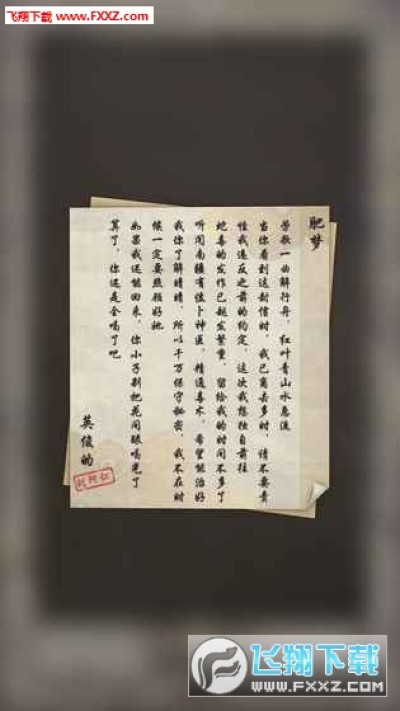 飞翔下载 www.FXXZ.com
肥梦
劳歌一曲解行舟，红叶青山水急流
当你看到这封信时，我已离去多时，请不要责
怪我违反之前的约定，这次我想独自前往
蛇毒的发作已越发繁重，留给我的时间不多了
听闻南疆有位卜神医，精通毒术，希望能治好
我 你了解晴晴 所以千万保守秘密，我不在时
候一定要照顾好她
如果我还能回来，你小子别把花间眠喝光了
算了，你还是全喝了吧
英俊的
飞翔下载
WWW.FXXZ.COM